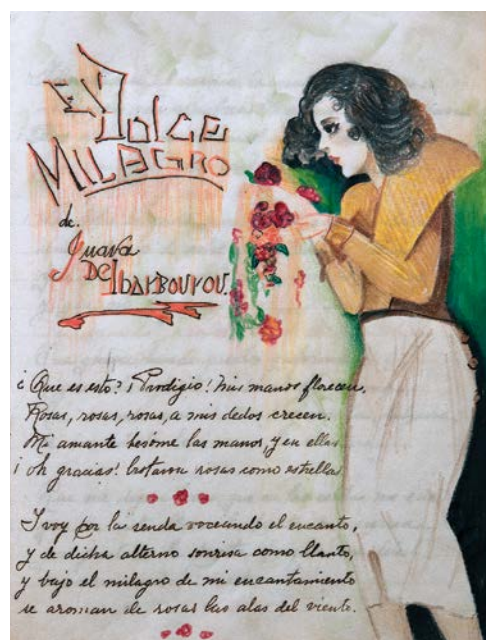 El
Dolce
Milagro
de.
Juana
De Ibarbourou
¿ Que es esto? ¡ Prodigio! mis manos florecen.
Rosas, rosas, rosas, a mis dedos crecen.
Mi amante besóme las manos, y en ellas
¡ oh gracias! brotaron rosas como estrella
Y voy por la senda voceando el encanto,
y de dicha alterno sonrisa como llanto,
y bajo el milagro de mi encantamiento
se aroman de rosas las alas del viento.